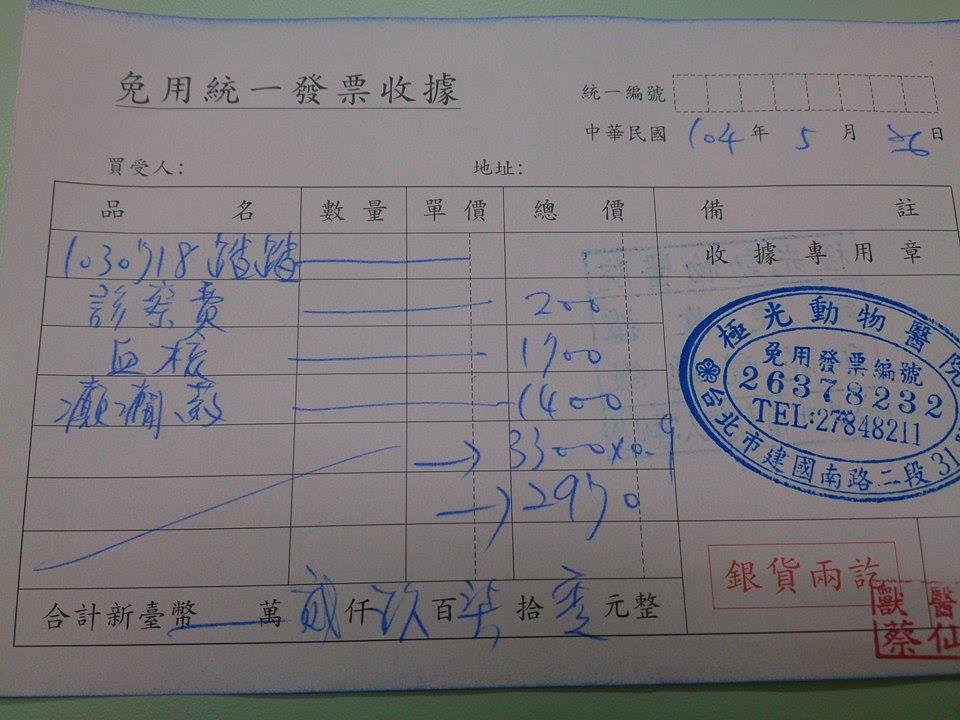 免用統一發票收據
統一編號
中華民國 104 年 5 月 26 日
買受人: 地址:
品名 數量 單價 總價 備註
收據專用章
診察費 200
血檢 1700
癲癇藥 1400
→ 3300x0.9
→ 2970
合計新臺幣 萬 貳 仟 玖 百 柒 拾 零 元整
極光動物醫院
免用發票編號
26378232
TEL:27848211
台北市建國南路二段31
銀貨兩訖
獸醫
蔡仙